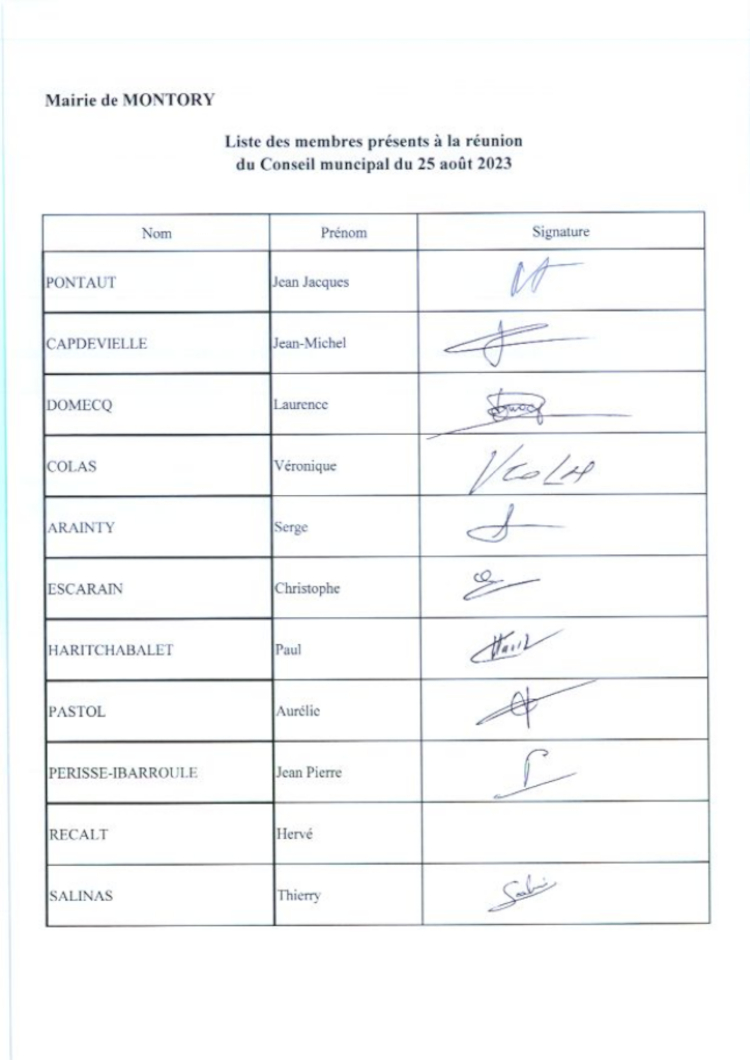 Mairie de MONTORY
Liste des membres présents à la réunion
du Conseil muncipal du 25 août 2023
Nom Prénom Signature
PONTAUT Jean Jacques
CAPDEVIELLE Jean-Michel
DOMECQ Laurence
COLAS Véronique VCOLAS
ARAINTY Serge
ESCARAIN Christophe
HARITCHABALET Paul
PASTOL Aurélie
PERISSE-IBARROULE Jean Pierre
RECALT Hervé
SALINAS Thierry